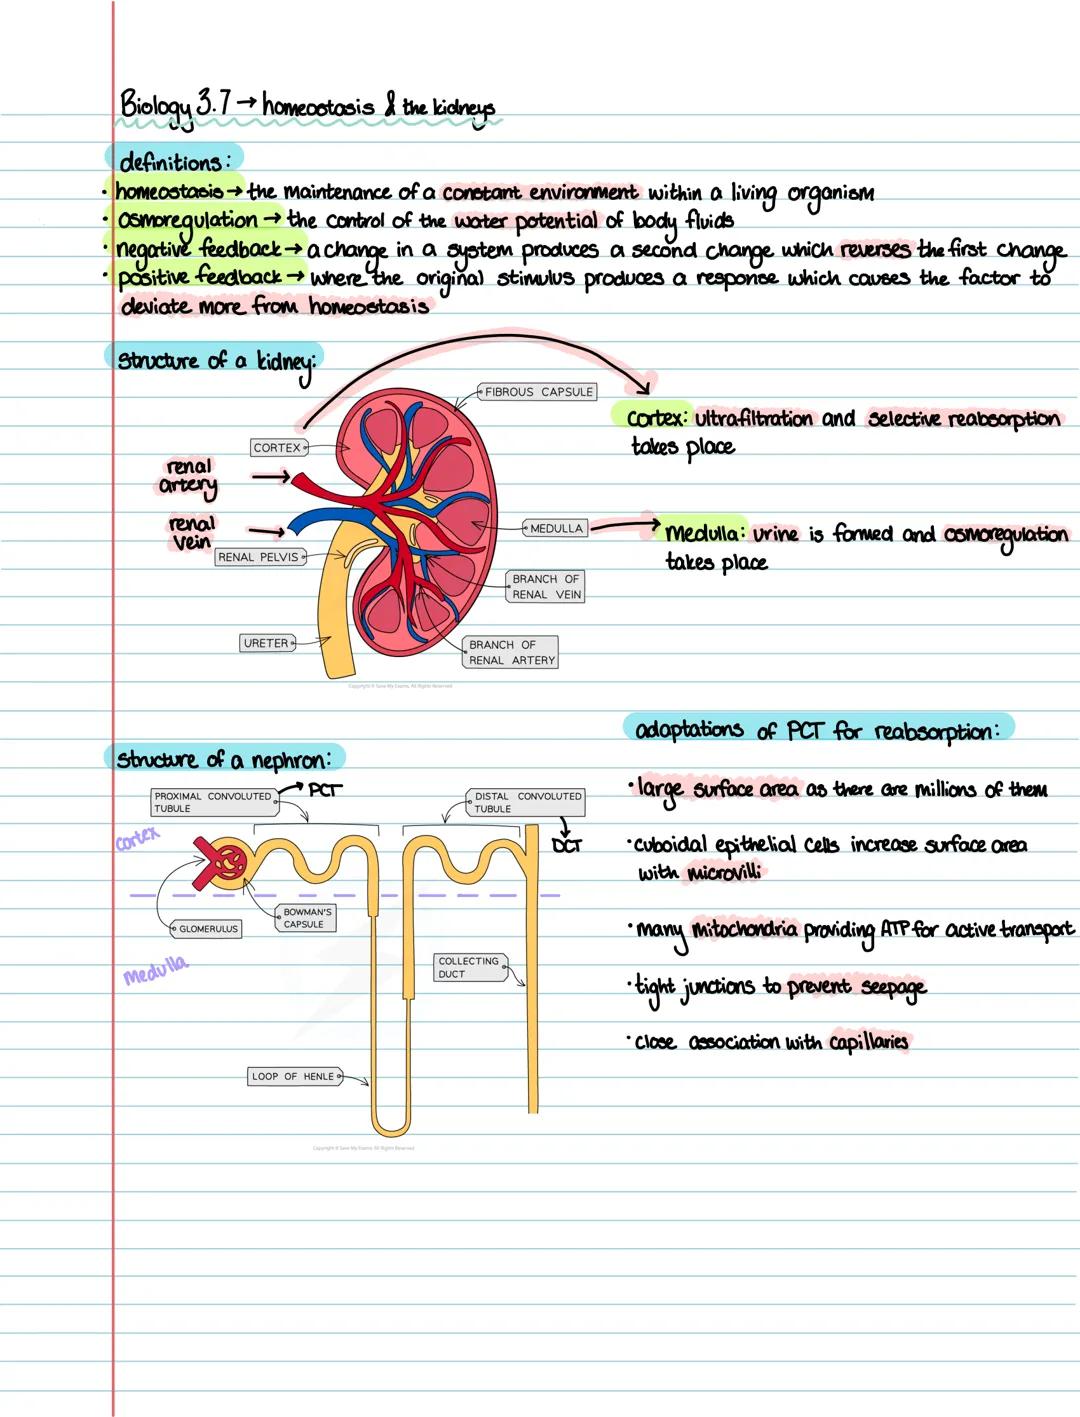 Biology 3.7 → homeostasis & the kidneys
definitions:
· homeostasis → the maintenance of a constant environment within a living organism
· osmoregulation → the control of the water potential of body fluids
· negative feedback → a change in a system produces a second change which reverses the first change
· positive feedback → where the original stimulus produces a response which causes the factor to
deviate more from homeostasis
structure of a kidney:
FIBROUS CAPSULE
CORTEX
renal
artery
renal
vein
RENAL PELVIS
MEDULLA
BRANCH OF
RENAL VEIN
URETER
BRANCH OF
RENAL ARTERY
Copyright © Save My Exams. All Rights Reserved
Cortex: ultrafiltration and selective reabsorption
takes place
Medulla: urine is formed and osmoregulation
takes place
structure of a nephron:
PROXIMAL CONVOLUTED
TUBULE
→ PCT
DISTAL CONVOLUTED
TUBULE
DCT
cortex
GLOMERULUS
BOWMAN'S
CAPSULE
medulla
COLLECTING
DUCT
LOOP OF HENLE
Copyright © Save My Exams. All Rights Reserved
adaptations of PCT for reabsorption:
· large surface area as there are millions of them
· cuboidal epithelial cells increase surface area
with microvilli
· many mitochondria providing ATP for active transport
· tight junctions to prevent seepage
· close association with capillaries